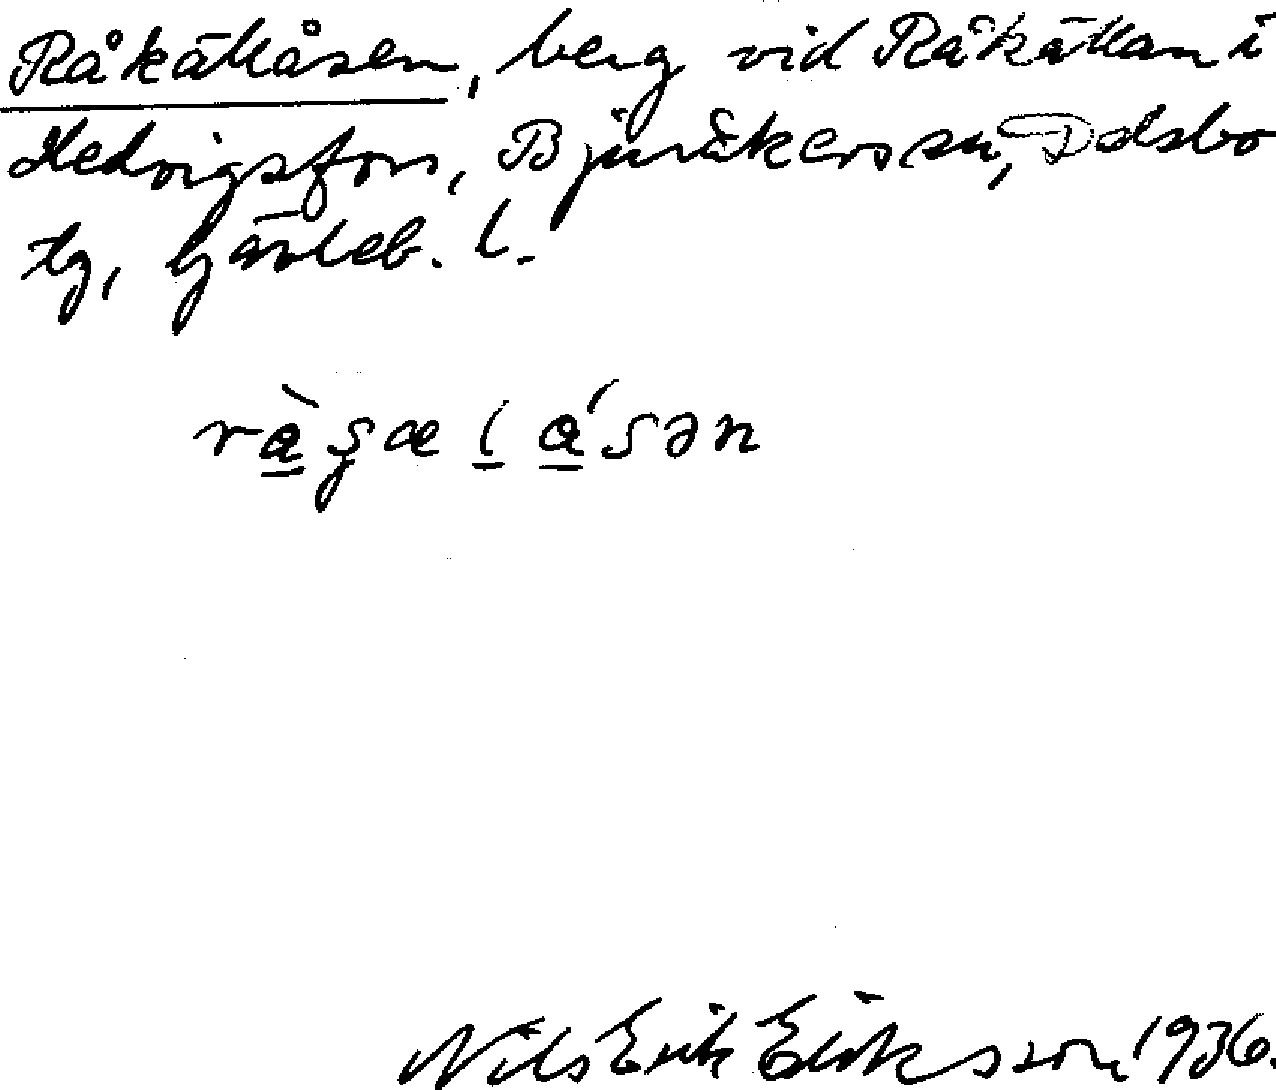 Råkällåsen, berg vid Råkällan i
Hedvigsfors, Bjuråkers sn, Delsbo
tg, Gävleb. l.
Nils Erik Eriksson 1936.